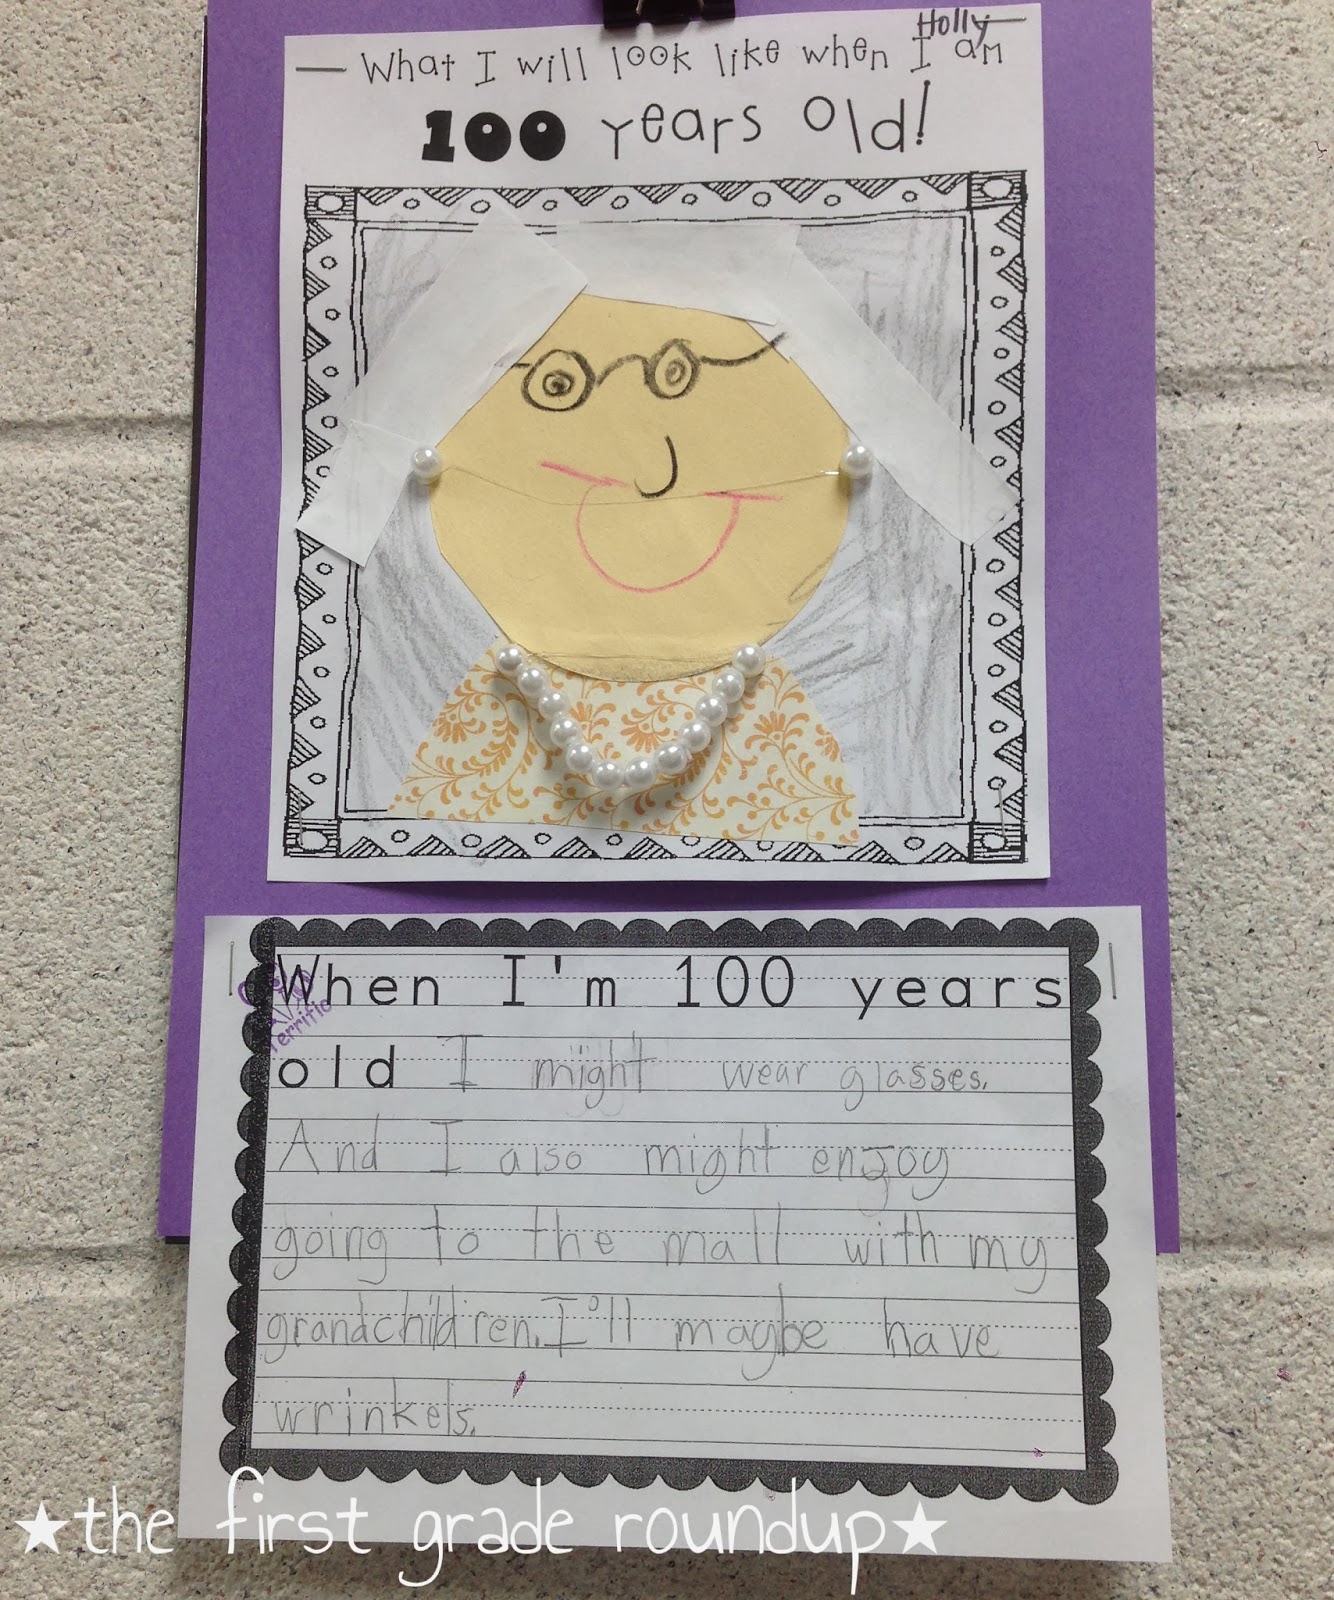 Holly
What I will look like when I am
100 years old!
When I'm 100 years
Terrific
old I might wear glasses.
And I also might enjoy
going to the mall with my
grandchildren. I'll maybe have
wrinkels.
★the first grade roundup★